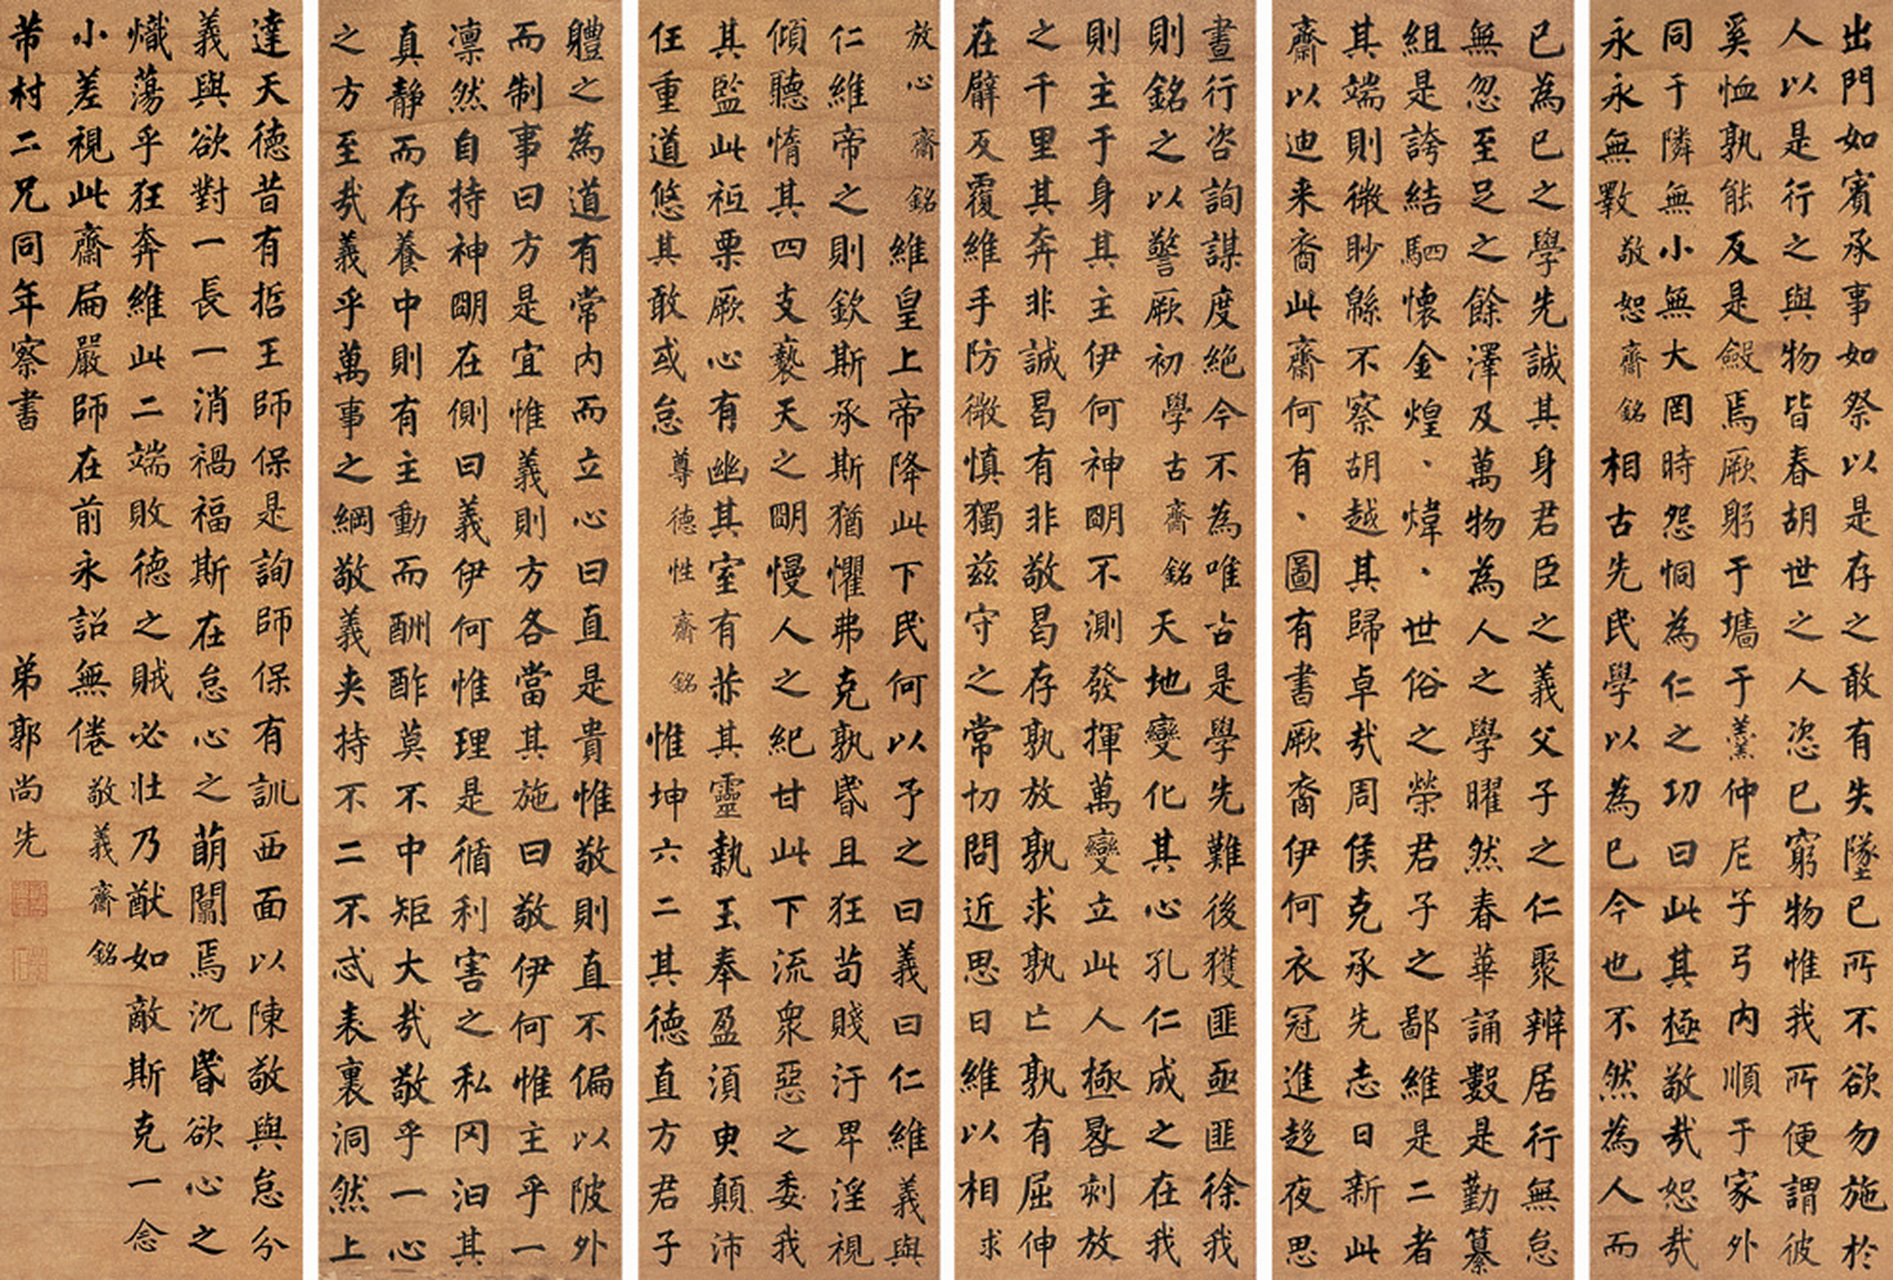 出門如賓承事如祭以是存之敢有失墜已所不欲勿施於
人以是行之與物皆春胡世之人恣已窮物惟我所便謂彼
奚恤孰能反是斂焉厥躬于墻于羹仲尼子弓內順于家外
同于隣無小無大罔時怨恫為仁之功曰此其極敬哉恕哉
永永無斁 敬恕齋銘 相古先民學以為已今也不然為人而
已為已之學先誠其身君臣之義父子之仁聚辨居行無怠
無忽至足之餘澤及萬物為人之學曜然春華誦數是勤纂
組是誇結駟懷金煌、煒、世俗之榮君子之鄙維是二者
其端則微眇緜不察胡越其歸卓哉周侯克承先志日新此
齋以迪来裔此齋何有、圖有書厥裔伊何衣冠進趍夜思
晝行咨詢謀度絕今不為唯古是學先難後獲匪亟匪徐我
則銘之以警厥初 學古齋銘 天地變化其心孔仁成之在我
則主于身其主伊何神明不測發揮萬變立此人極晷刻放
之千里其奔非誠曷有非敬曷存孰放孰求孰亡孰有屈伸
在臂反覆維手防微慎獨茲守之常切問近思曰維以相求
放心齋銘 維皇上帝降此下民何以予之曰義曰仁維義與
仁維帝之則欽斯承斯猶懼弗克孰昏且狂苟賤汙卑淫視
傾聽惰其四支褻天之明慢人之紀甘此下流衆惡之委我
其監此祗栗厥心有幽其室有恭其靈執玉奉盈須臾顛沛
任重道悠其敢或怠 尊德性齋銘 惟坤六二其德直方君子
軆之為道有常內而立心曰直是貴惟敬則直不偏以陂外
而制事曰方是宜惟義則方各當其施曰敬伊何惟主乎一
凛然自持神明在側曰義伊何惟理是循利害之私罔汩其
真静而存養中則有主動而酬酢莫不中矩大哉敬乎一心
之方至哉義乎萬事之綱敬義夹持不二不忒表裏洞然上
達天德昔有哲王師保是詢師保有訓西面以陳敬與怠分
義與欲對一長一消禍福斯在怠心之萌闒焉沉昏欲心之
熾蕩乎狂奔維此二端敗德之賊必壮乃猷如敵斯克一念
小差視此齋扁嚴師在前永詔無倦 敬義齋銘
芾村二兄同年察書 弟郭尚先